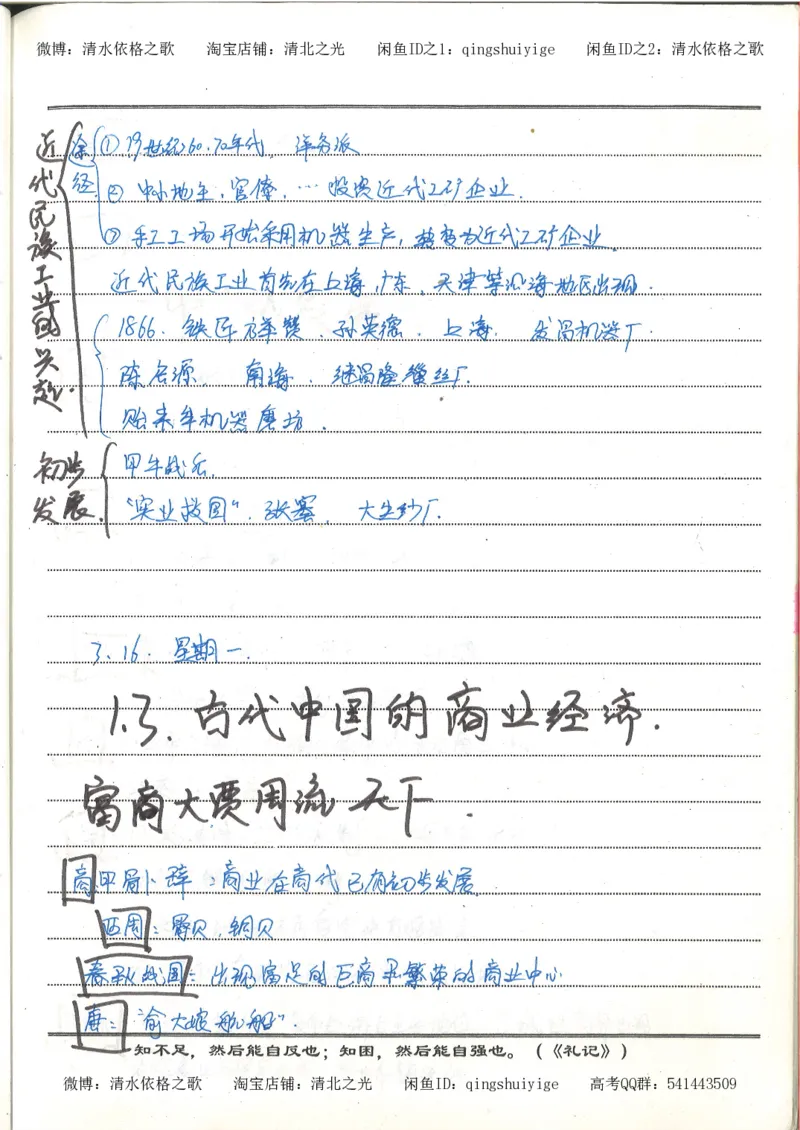 微博：清水依格之歌 淘宝店铺：清北之光 闲鱼ID之1：qingshuiyige 闲鱼ID之2：清水依格之歌
近代民族工业的兴起.
途经
①19世纪60.70年代, 洋务派
② 中小地主,官僚,…投资近代工矿企业.
③ 手工工场开始采用机器生产,转变为近代工矿企业.
近代民族工业首先在上海,广东、天津等沿海地区出现.
1866. 铁匠方举赞.孙英德. 上海. 发昌机器厂.
陈启源. 南海. 继昌隆缫丝厂.
贻来牟机器磨坊.
初步发展.
甲午战后.
“实业救国”.张謇. 大生纱厂.
3.16. 星期一.
1.3.古代中国的商业经济.
富商大贾周流天下.
商甲骨卜辞:商业在商代已有初步发展.
西周: 贝,铜贝
春秋战国:出现富足的巨商和繁荣的商业中心
唐:“俞大娘航船”.
知不足，然后能自反也；知困，然后能自强也。（《礼记》）
微博：清水依格之歌 淘宝店铺：清北之光 闲鱼ID：qingshuiyige 高考QQ群：541443509